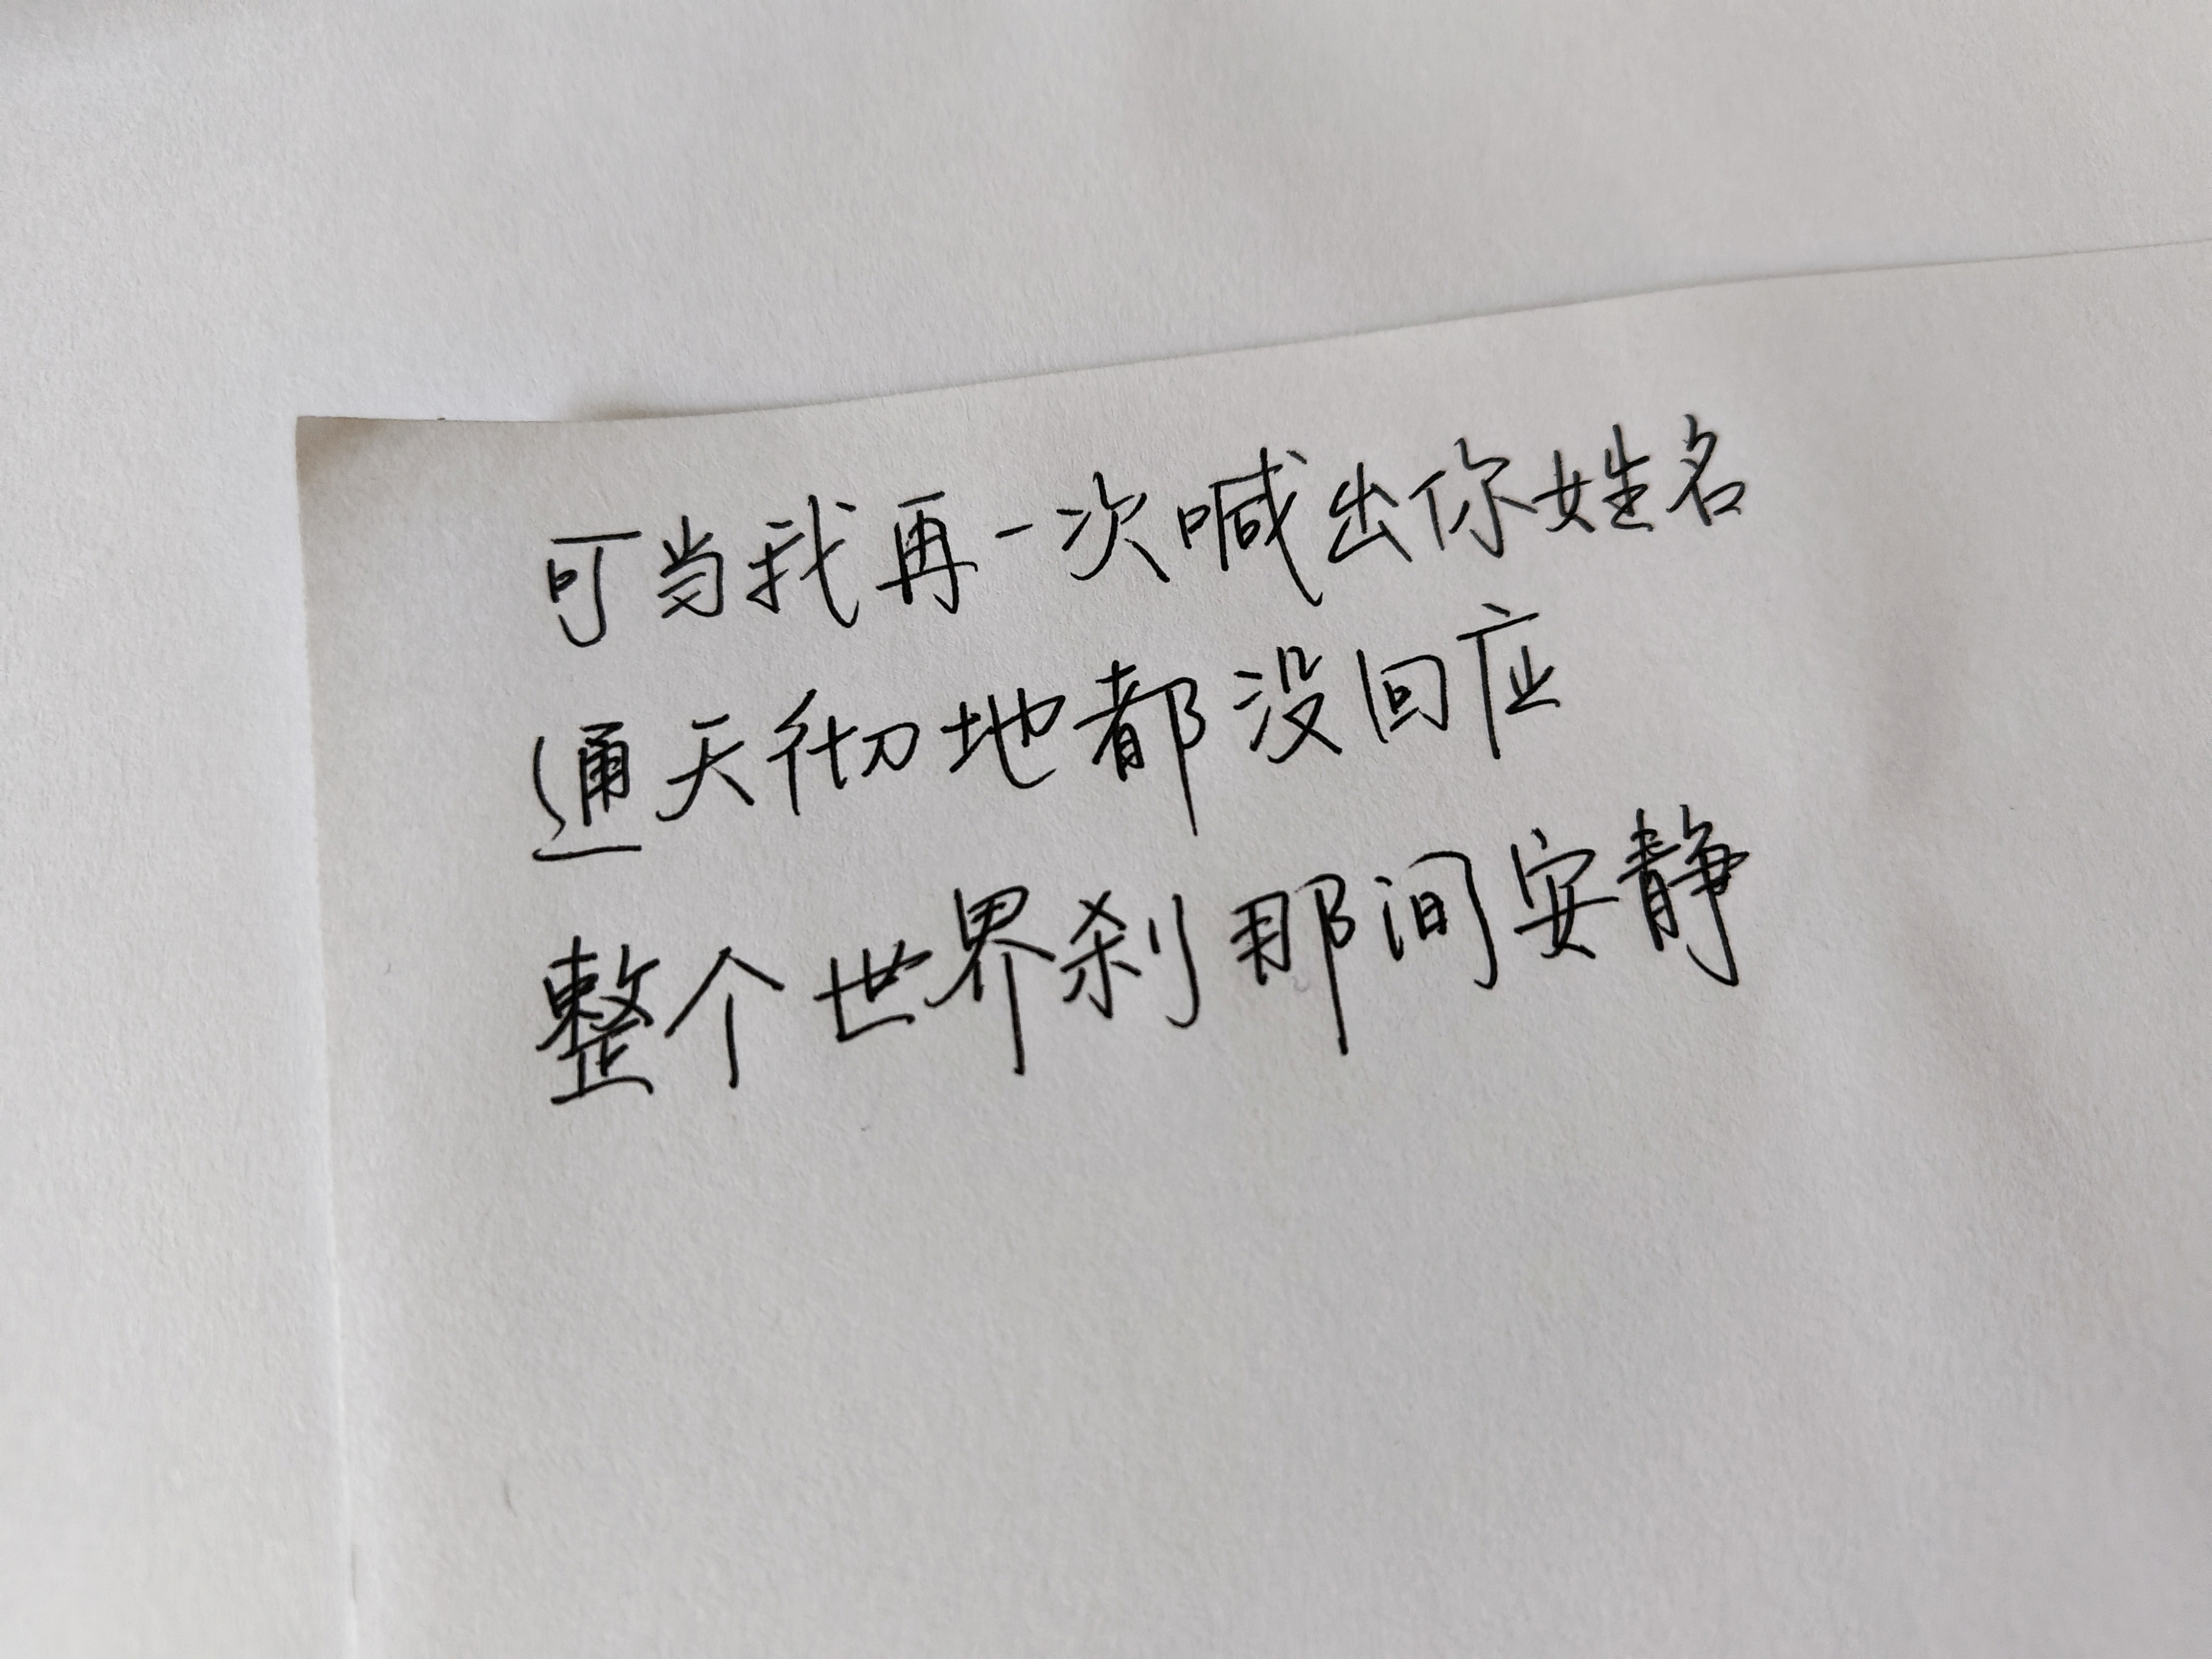 可当我再一次喊出你姓名
通天彻地都没回应
整个世界刹那间安静